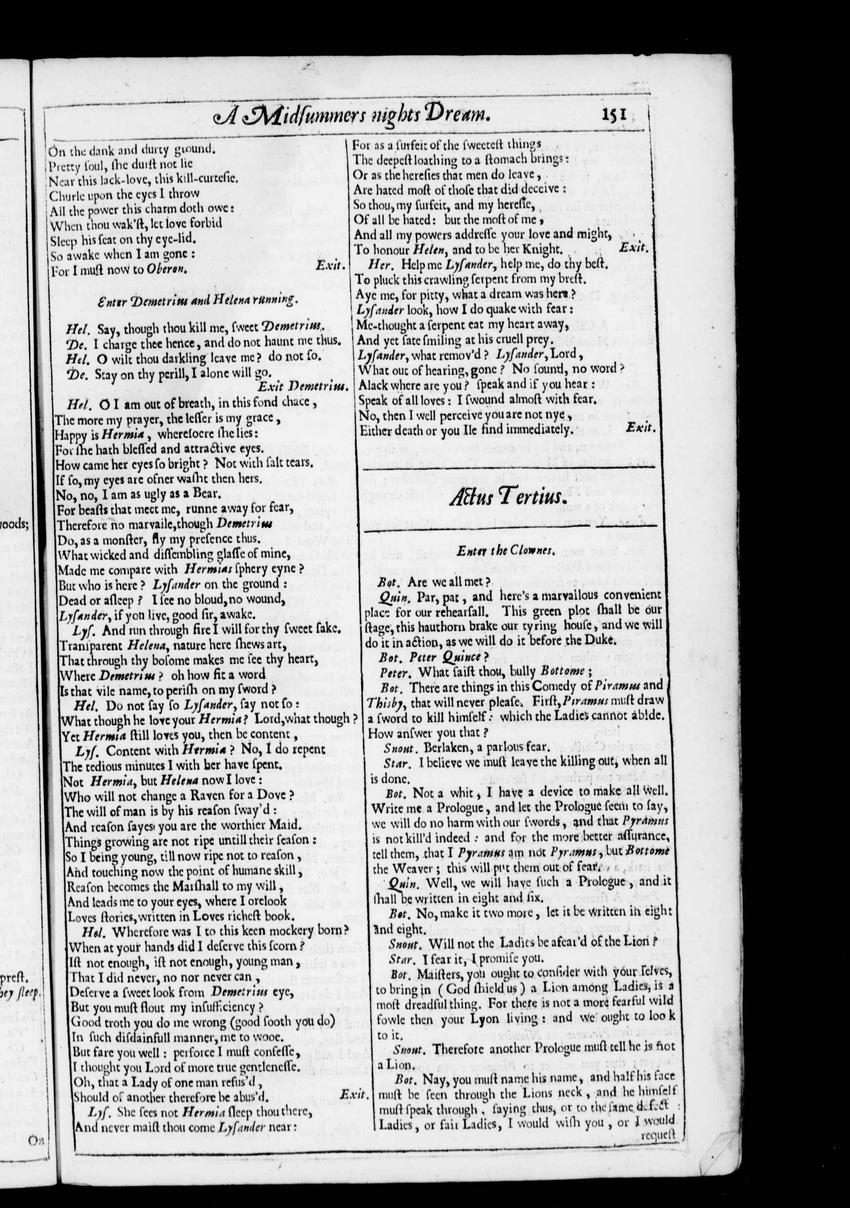 A Midſummers nights Dream. 151
On the dank and durty ground.
Pretty ſoul, ſhe durſt not lie
Near this lack-love, this kill-curteſie.
Churle upon the eyes I throw
All the power this charm doth owe:
When thou wak'ſt, let love forbid
Sleep his ſeat on thy eye-lid.
So awake when I am gone:
For I muſt now to Oberon. Exit.
Enter Demetrius and Helena running.
Hel. Say, though thou kill me, ſweet Demetrius.
De. I charge thee hence, and do not haunt me thus.
Hel. O wilt thou darkling leave me? do not ſo.
De. Stay on thy perill, I alone will go.
Exit Demetrius.
Hel. O I am out of breath, in this fond chace,
The more my prayer, the leſſer is my grace,
Happy is Hermia, whereſoere ſhe lies:
For ſhe hath bleſſed and attractive eyes.
How came her eyes ſo bright? Not with ſalt tears.
If ſo, my eyes are ofner waſht then hers.
No, no, I am as ugly as a Bear.
For beaſts that meet me, runne away for fear,
Therefore no marvaile, though Demetrius
Do, as a monſter, fly my preſence thus.
What wicked and diſſembling glaſſe of mine,
Made me compare with Hermias ſphery eyne?
But who is here? Lyſander on the ground:
Dead or aſleep? I ſee no bloud, no wound,
Lyſander, if you live, good ſir, awake.
Lyſ. And run through fire I will for thy ſweet ſake.
Tranſparent Helena, nature here ſhews art,
That through thy boſome makes me ſee thy heart,
Where Demetrius? oh how fit a word
Is that vile name, to periſh on my ſword?
Hel. Do not ſay ſo Lyſander, ſay not ſo:
What though he love your Hermia? Lord, what though?
Yet Hermia ſtill loves you, then be content,
Lyſ. Content with Hermia? No, I do repent
The tedious minutes I with her have ſpent.
Not Hermia, but Helena now I love:
Who will not change a Raven for a Dove?
The will of man is by his reaſon ſway'd:
And reaſon ſayes you are the worthier Maid.
Things growing are not ripe untill their ſeaſon:
So I being young, till now ripe not to reaſon,
And touching now the point of humane skill,
Reaſon becomes the Marſhall to my will,
And leads me to your eyes, where I orelook
Loves ſtories, written in Loves richeſt book.
Hel. Wherefore was I to this keen mockery born?
When at your hands did I deſerve this ſcorn?
Iſt not enough, iſt not enough, young man,
That I did never, no nor never can,
Deſerve a ſweet look from Demetrius eye,
But you muſt flout my inſufficiency?
Good troth you do me wrong (good ſooth you do)
In ſuch diſdainfull manner, me to wooe.
But fare you well: perforce I muſt confeſſe,
I thought you Lord of more true gentleneſſe.
Oh, that a Lady of one man refus'd,
Should of another therefore be abus'd. Exit.
Lyſ. She ſees not Hermia ſleep thou there,
And never maiſt thou come Lyſander near:
For as a ſurfeit of the ſweeteſt things
The deepeſt loathing to a ſtomach brings:
Or as the hereſies that men do leave,
Are hated moſt of thoſe that did deceive:
So thou, my ſurfeit, and my hereſie,
Of all be hated: but the moſt of me,
And all my powers addreſſe your love and might,
To honour Helen, and to be her Knight. Exit.
Her. Help me Lyſander, help me, do thy beſt.
To pluck this crawling ſerpent from my breſt.
Aye me, for pitty, what a dream was here?
Lyſander look, how I do quake with fear:
Me-thought a ſerpent eat my heart away,
And yet ſate ſmiling at his cruell prey.
Lyſander, what remov'd? Lyſander, Lord,
What out of hearing, gone? No ſound, no word?
Alack where are you? ſpeak and if you hear:
Speak of all loves: I ſwound almoſt with fear.
No, then I well perceive you are not nye,
Either death or you Ile find immediately. Exit.
Actus Tertius.
Enter the Clownes.
Bot. Are we all met?
Quin. Par, pat, and here's a marvailous convenient
place for our rehearſall. This green plot ſhall be our
ſtage, this hauthorn brake our tyring houſe, and we will
do it in action, as we will do it before the Duke.
Bot. Peter Quince?
Peter. What ſaiſt thou, bully Bottome;
Bot. There are things in this Comedy of Piramus and
Thisby, that will never pleaſe. Firſt, Piramus muſt draw
a ſword to kill himſelf: which the Ladies cannot abide.
How anſwer you that?
Snout. Berlaken, a parlous fear.
Star. I believe we muſt leave the killing out, when all
is done.
Bot. Not a whit, I have a device to make all well.
Write me a Prologue, and let the Prologue ſeem to ſay,
we will do no harm with our ſwords, and that Pyramus
is not kill'd indeed: and for the more better aſſurance,
tell them, that I Pyramus am not Pyramus, but Bottome
the Weaver; this will put them out of fear.
Quin. Well, we will have ſuch a Prologue, and it
ſhall be written in eight and ſix.
Bot. No, make it two more, let it be written in eight
and eight.
Snout. Will not the Ladies be afear'd of the Lion?
Star. I fear it, I promiſe you.
Bot. Maiſters, you ought to conſider with your ſelves,
to bring in (God ſhield us) a Lion among Ladies, is a
moſt dreadful thing. For there is not a more fearful wild
fowle then your Lyon living: and we ought to look
to it.
Snout. Therefore another Prologue muſt tell he is not
a Lion.
Bot. Nay, you muſt name his name, and half his face
muſt be ſeen through the Lions neck, and he himſelf
muſt ſpeak through, ſaying thus, or to the ſame defect:
Ladies, or fair Ladies, I would wiſh you, or I would
requeſt
woods;
preſt.
hey ſleep.
On